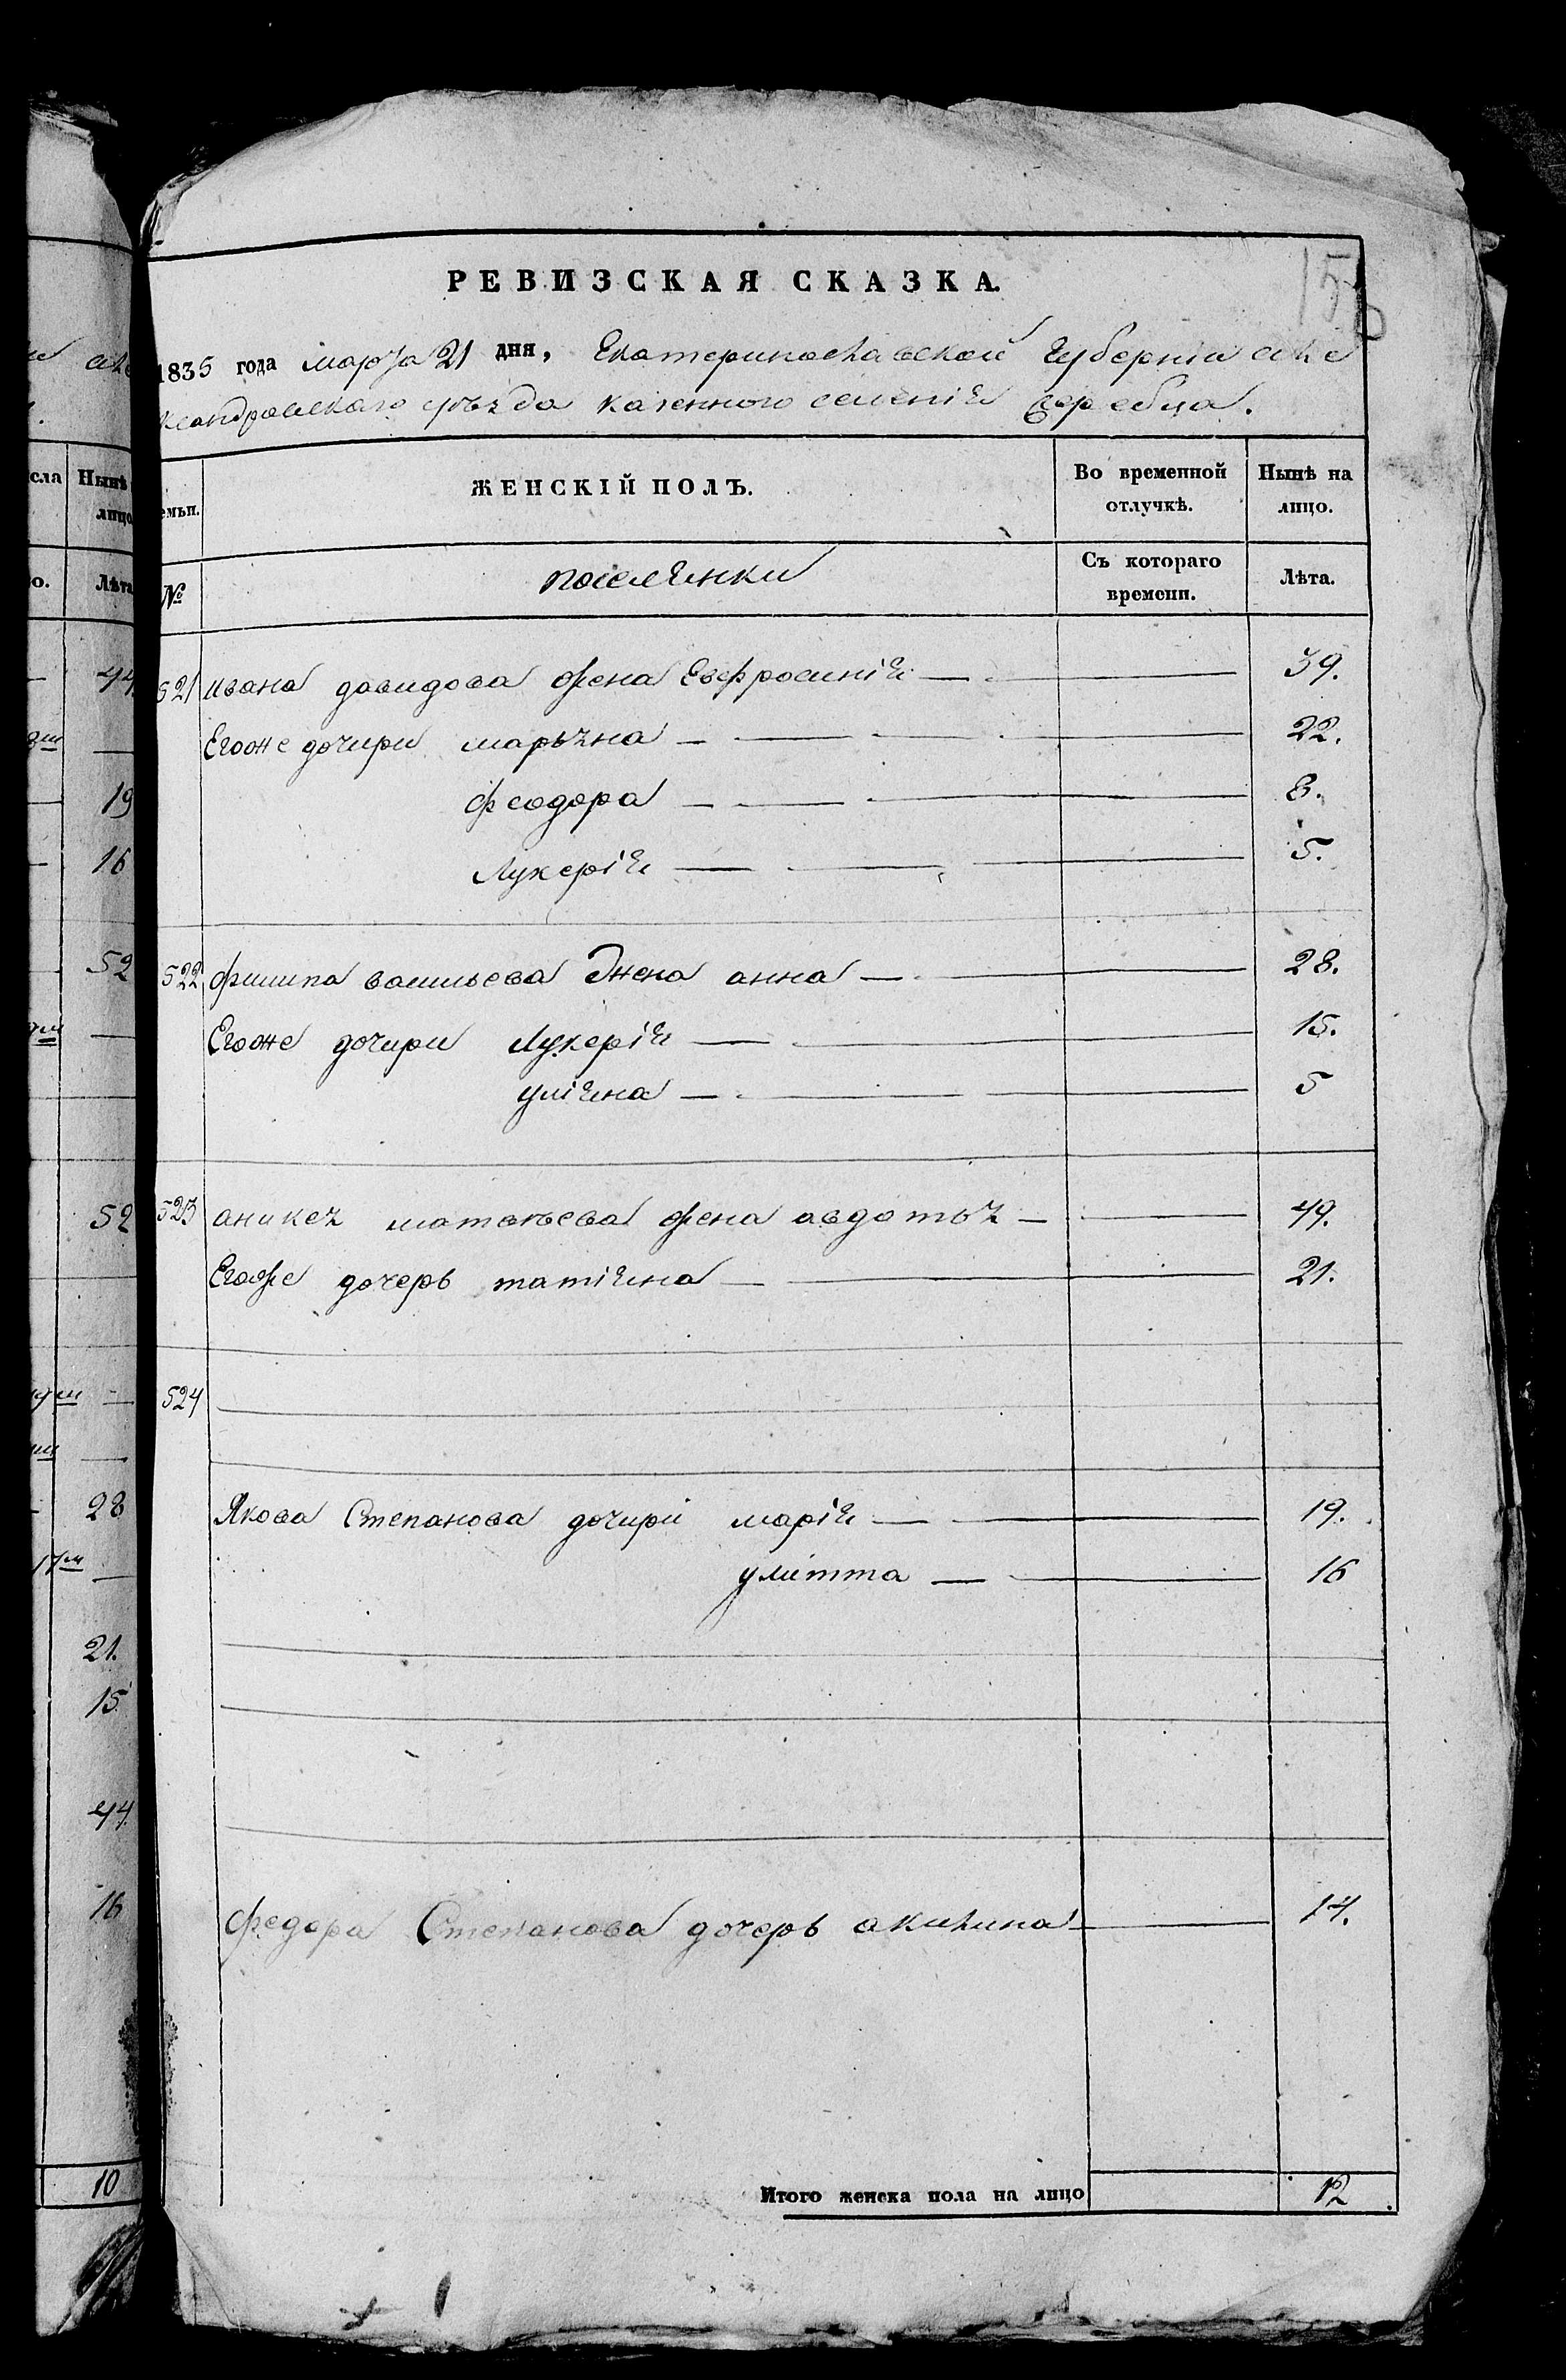 РЕВИЗСКАЯ СКАЗКА.
1835 года марта 21 дня, Екатеринославской Губерніи але
ксандровскаго уѣзда казенного селенія Жеребца.
емьи.
ЖЕНСКІЙ ПОЛЪ.
Во временной отлучкѣ.
Нынѣ на лицо.
№
поселянки
Съ котораго времени.
Лѣта.
521 ивана давидова жена Евфросинія — 39.
Егоже дочири марьяна — 22.
феодора — 8.
Лукерія — 5.
522 филипа васильева жена анна — 28.
Егоже дочири Лукерія — 15.
уліяна — 5
523 аникея матвѣева жена авдотья — 49.
Егоже дочерь татіяна — 21.
524
Якова Степанова дочири марія — 19.
улитта — 16
федора Степанова дочерь акилина — 14.
Итого женска пола на лицо 12
сла
Нынѣ
лицо
о.
Лѣта
44
19
16
52
52
28
17м
21.
15
44
16
10